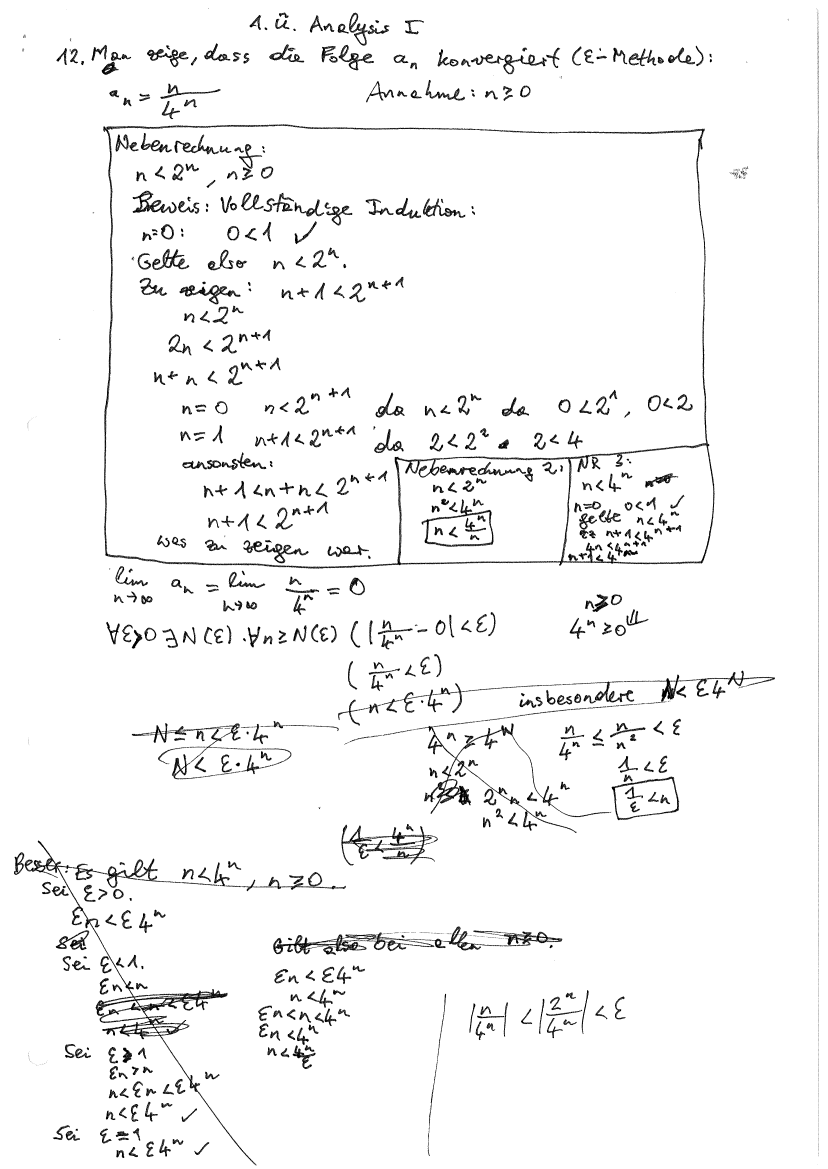 1. Ü. Analysis I
12. Man zeige, dass die Folge aₙ konvergiert (ε-Methode):
aₙ = n/4ⁿ Annahme: n ≥ 0
Nebenrechnung:
n < 2ⁿ, n ≥ 0
Beweis: Vollständige Induktion:
n=0: 0 < 1 ✓
Gelte also n < 2ⁿ.
Zu zeigen: n+1 < 2ⁿ⁺¹
n < 2ⁿ
2n < 2ⁿ⁺¹
n + n < 2ⁿ⁺¹
n = 0 n < 2ⁿ⁺¹ da n < 2ⁿ da 0 < 2¹, 0 < 2
n = 1 n+1 < 2ⁿ⁺¹ da 2 < 2² 2 < 4
ansonsten:
n+1 < n+n < 2ⁿ⁺¹
n+1 < 2ⁿ⁺¹
was zu zeigen war.
Nebenrechnung 2:
n < 2ⁿ
n² < 4ⁿ
n < 4ⁿ/n
NR 3:
n < 4ⁿ
n=0 0 < 1 ✓
gelte n < 4ⁿ
zz n+1 < 4ⁿ⁺¹
4n < 4ⁿ⁺¹
n+1 < 4ⁿ⁺¹
lim n→∞ aₙ = lim n→∞ n/4ⁿ = 0
n ≥ 0
4ⁿ ≥ 0
∀ε>0 ∃N(ε) ∀n≥N(ε) (|n/4ⁿ - 0| < ε)
(n/4ⁿ < ε)
(n < ε·4ⁿ) insbesondere N < ε4ᴺ
N ≤ n < ε·4ⁿ
N < ε·4ⁿ
4ⁿ ≥ 4ᴺ
n < 2ⁿ
2ⁿn < 4ⁿ
n² < 4ⁿ
n/4ⁿ ≤ n/n² < ε
1/n < ε
1/ε < n
(1/ε < 4ⁿ/n)
Besser: Es gilt n < 4ⁿ, n ≥ 0.
Sei ε > 0.
εn < ε4ⁿ
Sei
Sei ε < 1.
εn < n
εn < n < ε4ⁿ
n < 4ⁿ
Sei ε > 1
εn > n
n < εn < ε4ⁿ
n < ε4ⁿ ✓
Sei ε = 1
n < ε4ⁿ ✓
Gilt also bei allen n ≥ 0.
εn < ε4ⁿ
n < 4ⁿ
εn < n < 4ⁿ
εn < 4ⁿ
n < 4ⁿ/ε
|n/4ⁿ| < |2ⁿ/4ⁿ| < ε